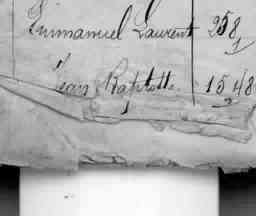 Emmanuel Laurent 258
1
Jean Baptiste 15 4/8
2